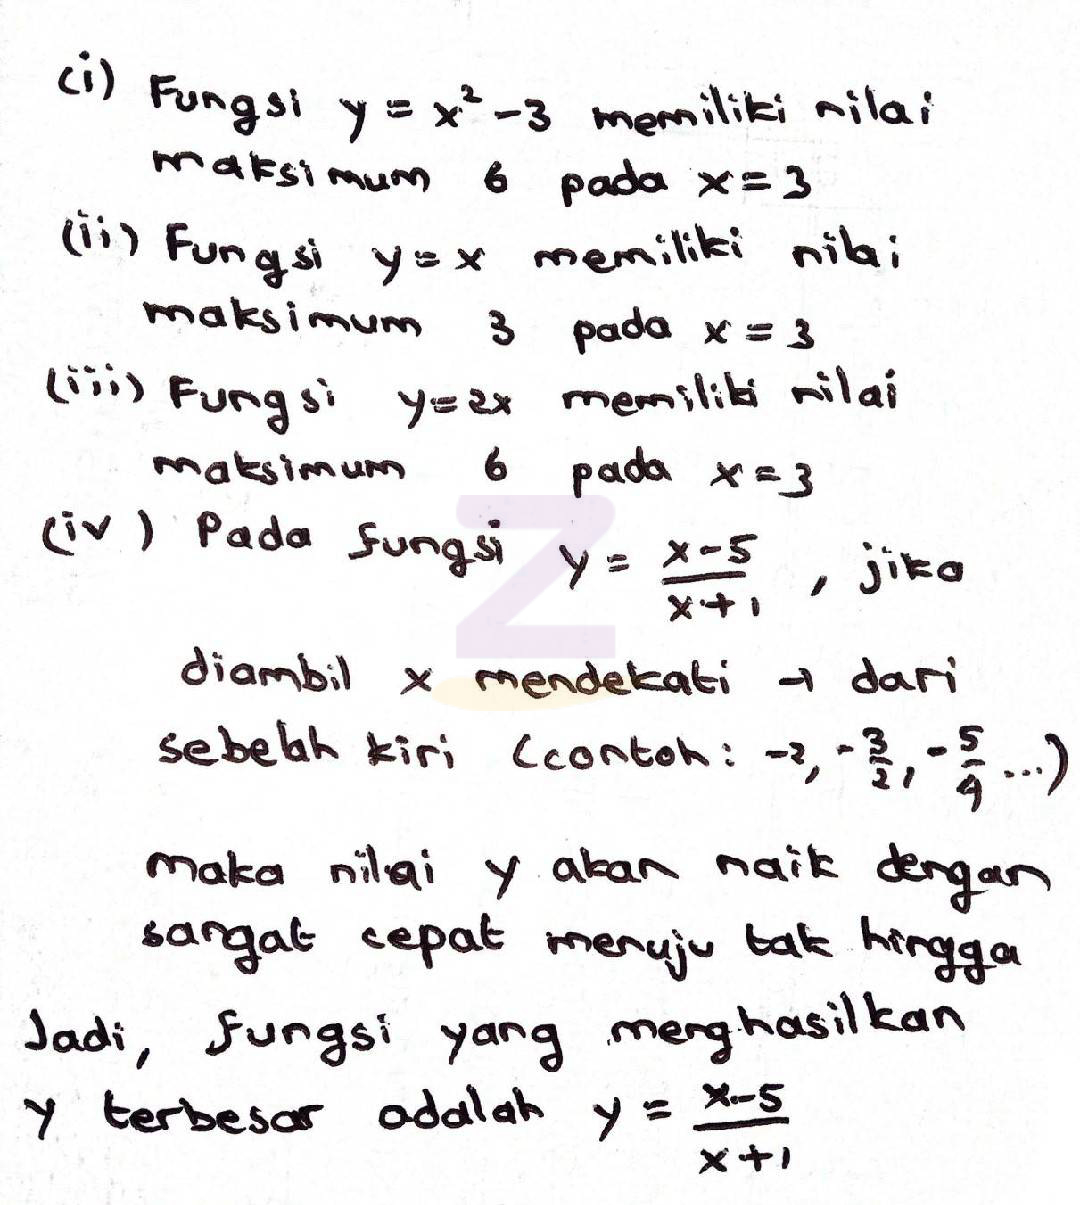 (i) Fungsi y = x² - 3 memiliki nilai
maksimum 6 pada x = 3
(ii) Fungsi y = x memiliki nilai
maksimum 3 pada x = 3
(iii) Fungsi y = 2x memiliki nilai
maksimum 6 pada x = 3
(iv) Pada fungsi y = (x-5)/(x+1), jika
diambil x mendekati -1 dari
sebelah kiri (contoh: -2, -3/2, -5/4 ...)
maka nilai y akan naik dengan
sangat cepat menuju tak hingga
Jadi, fungsi yang menghasilkan
y terbesar adalah y = (x-5)/(x+1)